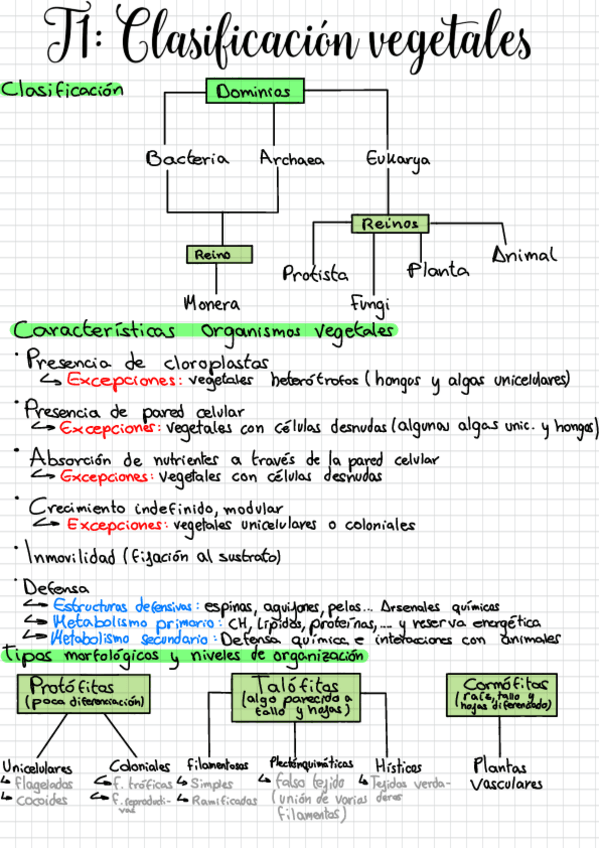 T1: Clasificación vegetales
Clasificación
Dominios
Bacteria Archaea Eukarya
Reinos
Reino
Protista Planta Animal
Monera Fungi
Características Organismos vegetales
· Presencia de cloroplastos
↳ Excepciones: vegetales heterótrofos (hongos y algas unicelulares)
· Presencia de pared celular
↳ Excepciones: vegetales con células desnudas (algunas algas unic. y hongos)
· Absorción de nutrientes a través de la pared celular
↳ Excepciones: Vegetales con células desnudas
· Crecimiento indefinido, modular
↳ Excepciones: vegetales unicelulares o coloniales
· Inmovilidad (fijación al sustrato)
· Defensa
↳ Estructuras defensivas: espinas, aguijones, pelos... Arsenales químicos
↳ Metabolismo primario: CH, Lípidos, proteínas,... y reserva energética
↳ Metabolismo secundario: Defensa química e interacciones con animales
Tipos morfológicos y niveles de organización
Protófitas
(poca diferenciación)
Talófitas
(algo parecido a
tallo y hojas)
Cormófitas
(raíz, tallo y
hojas diferenciado)
Unicelulares
↳ flagelados
↳ cocoides
Coloniales
↳ f. tróficas
↳ f. reproducti-
vas
Filamentosas
↳ Simples
↳ Ramificadas
Plectenquimáticas
↳ falso tejido
(unión de varios
filamentos)
Hísticas
↳ Tejidos verda-
deros
Plantas
Vasculares